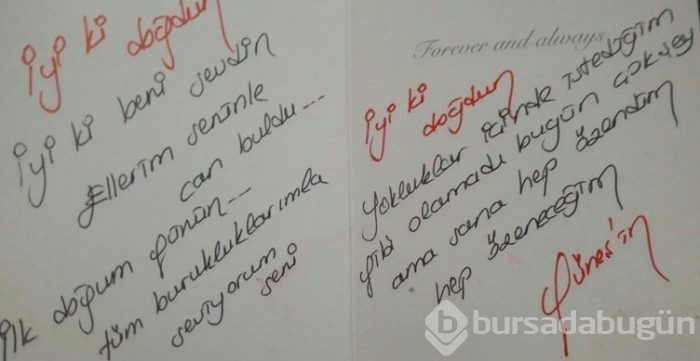 iyi ki doğdun
iyi ki beni sevdin
Ellerim seninle
can buldu...
ilk doğum günün...
tüm burukluklarımla
seviyorum
seni
Forever and always
iyi ki
doğdun
Yokluklar içinde istediğim
gibi olamadı bugün çok şey
ama sana hep özendim
hep özeneceğim
Güneş'in
b bursadabugün